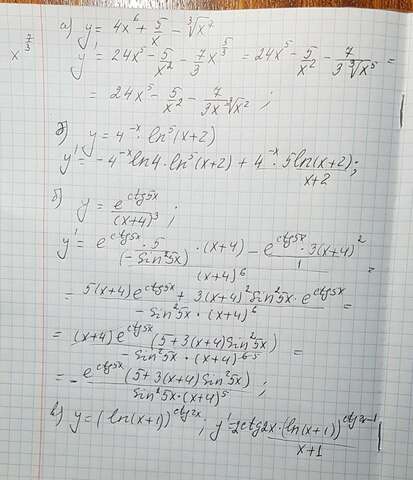 x^(7/3)
а) y = 4x⁶ + 5/x - ∛x⁷
y' = 24x⁵ - 5/x² - 7/3 x^(5/3) = 24x⁵ - 5/x² - 7/(3∛x⁵) =
= 24x⁵ - 5/x² - 7/(3x∛x²) ;
д) y = 4^(-x) · ln⁵(x+2)
y' = -4^(-x) ln4 · ln⁵(x+2) + 4^(-x) · 5ln(x+2)/(x+2) ;
б) y = e^(ctg5x)/(x+4)³ ;
y' = (e^(ctg5x) · 5/(-sin²5x) · (x+4) - e^(ctg5x) · 3(x+4)²/1)/(x+4)⁶ =
= (5(x+4)e^(ctg5x) + 3(x+4)² sin²5x · e^(ctg5x))/(-sin²5x · (x+4)⁶) =
= (x+4)e^(ctg5x) (5+3(x+4)sin²5x)/(-sin²5x · (x+4)^(6 5)) =
= - e^(ctg5x) (5+3(x+4)sin²5x)/(sin²5x · (x+4)⁵) ;
в) y = (ln(x+1))^(ctg2x) ; y' = 2ctg2x · (ln(x+1))^(ctg2x-1)/(x+1)